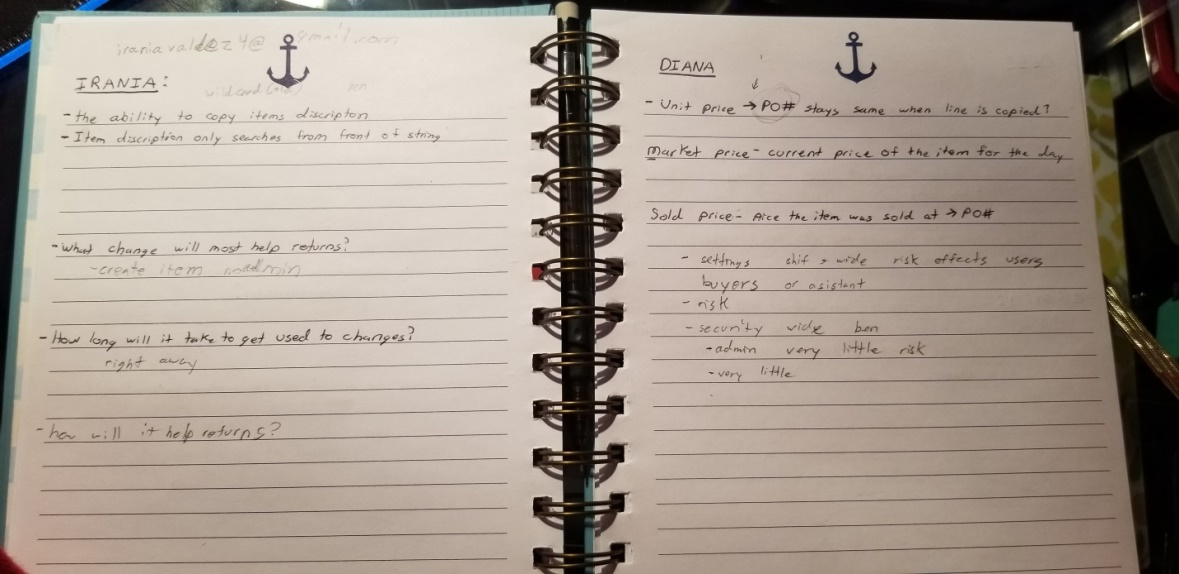 iraniavaldez4@gmail.com
IRANIA:
wildcard
- the ability to copy items discripton
- Item discription only searches from front of string
- What change will most help returns?
- create item
- How long will it take to get used to changes?
right away
- how will it help returns?
DIANA
- Unit price → PO# stays same when line is copied?
Market price - current price of the item for the day
Sold price - Price the item was sold at → PO#
- settings wide risk effects users
buyers or asistant
- risk
- security ben
- admin very little risk
- very little